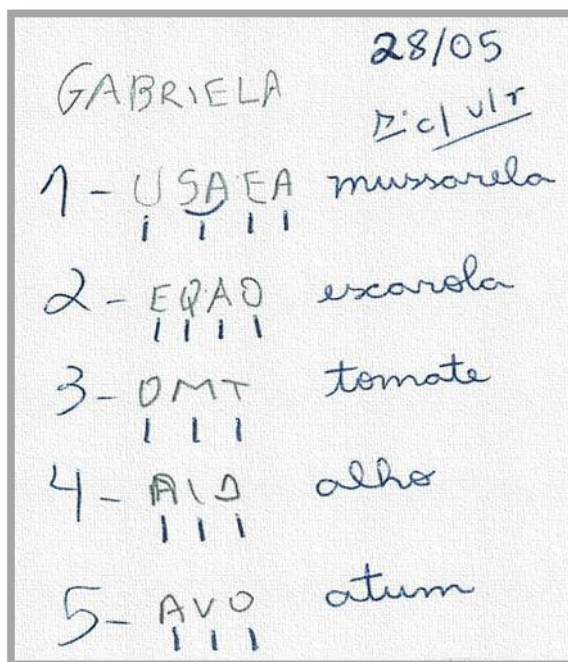 28/05
GABRIELA
1 - USAEA mussarela
2 - EQAO escarola
3 - OMT tomate
4 - AIO alho
5 - AVO atum